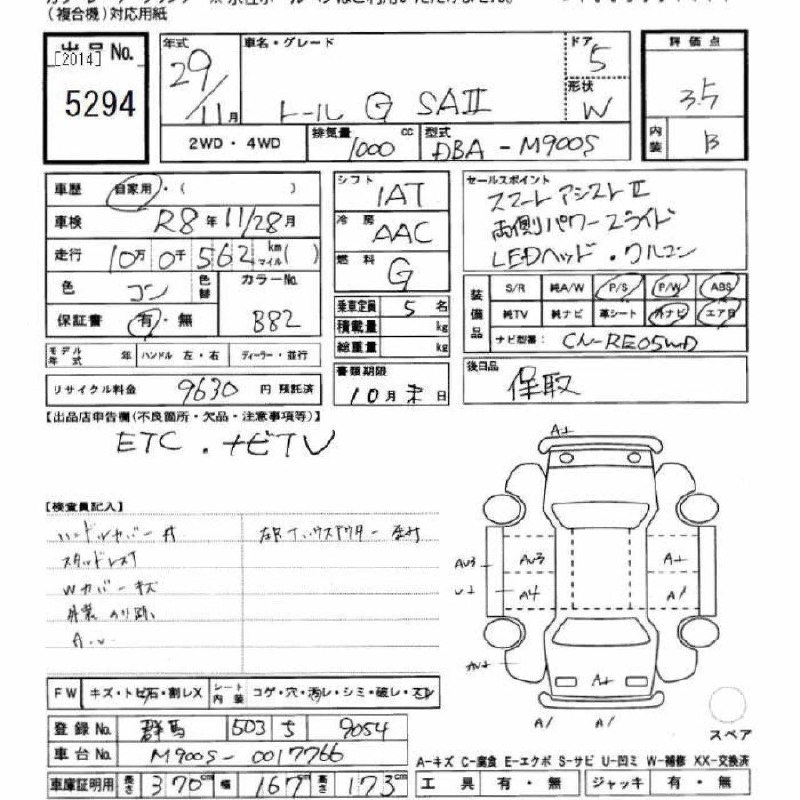 (複合機)対応用紙
出品No.
[2014]
5294
年式
29/11月
車名・グレード
トール G SAII
ドア
5
形状
W
2WD・4WD
排気量
1000 cc
型式
DBA-M900S
評価点
3.5
内装
B
車歴
自家用・( )
車検
R8年11/28月
走行
10万0千562 km マイル( )
色
コン
色替
カラーNo.
B82
保証書
有・無
モデル年式 年
ハンドル 左・右
ディーラー・並行
リサイクル料金
9630 円 預託済
シフト
IAT
冷房
AAC
燃料
G
乗車定員
5 名
積載量
kg
総重量
kg
書類期限
10月末日
セールスポイント
スマートアシストII
両側パワースライド
LEDヘッド・クルコン
装備品
S/R 純A/W P/S P/W ABS
純TV 純ナビ 革シート 外ナビ エアB
ナビ型番:
CN-RE05WD
後日品
保取
【出品店申告欄(不良箇所・欠品・注意事項等)】
ETC.ナビTV
【検査員記入】
ハンドルカバー付
スタッドレス付
Wカバーキズ
A.U
A-キズ C-腐食 E-エクボ S-サビ U-凹ミ W-補修 XX-交換済
A+
AU3
AU3
A+
A4
A/
A+
A/
A/
スペア
FW
キズ・トビ石・割レX
シート内装
コゲ・穴・汚レ・シミ・破レ・スレ
登録No.
群馬 503 5 9054
車台No.
M900S-0017766
車庫証明用
長さ 370 cm 幅 167 cm 高さ 173 cm
工具 有・無
ジャッキ 有・無